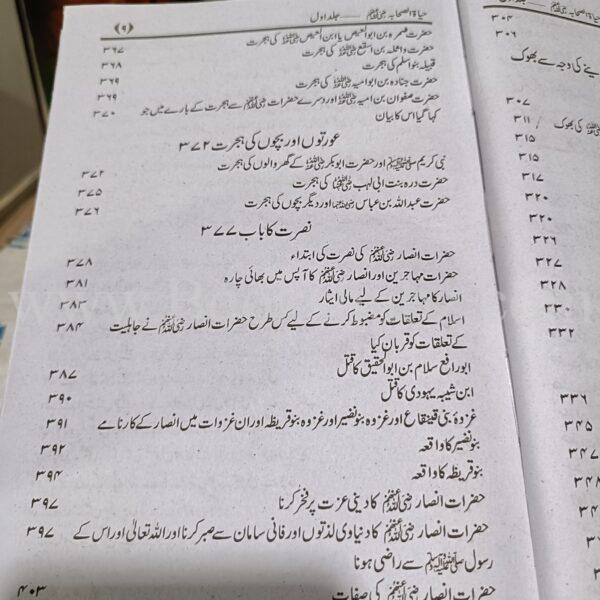 حیاۃ الصحابہ رضی اللہ عنہم —— جلد اول (۹)
حضرت ضمرہ بن ابوالعیص یا ابن العیص رضی اللہ عنہ کی ہجرت ۳۶۷
حضرت واثلہ بن اسقع رضی اللہ عنہ کی ہجرت ۳۶۷
قبیلہ بنو اسلم کی ہجرت ۳۶۸
حضرت جنادہ بن ابو امیہ رضی اللہ عنہ کی ہجرت ۳۶۹
حضرت صفوان بن امیہ رضی اللہ عنہ اور دوسرے حضرات رضی اللہ عنہم سے ہجرت کے بارے میں جو ۳۶۹
کہا گیا اس کا بیان ۳۷۰
عورتوں اور بچوں کی ہجرت ۳۷۲
نبی کریم صلی اللہ علیہ وسلم اور حضرت ابوبکر رضی اللہ عنہ کے گھر والوں کی ہجرت ۳۷۲
حضرت درہ بنت ابی لہب رضی اللہ عنہا کی ہجرت ۳۷۵
حضرت عبداللہ بن عباس رضی اللہ عنہما اور دیگر بچوں کی ہجرت ۳۷۶
نصرت کا باب ۳۷۷
حضرات انصار رضی اللہ عنہم کی نصرت کی ابتداء ۳۷۸
حضرات مہاجرین اور انصار رضی اللہ عنہم کا آپس میں بھائی چارہ ۳۸۱
انصار کا مہاجرین کے لیے مالی ایثار ۳۸۳
اسلام کے تعلقات کو مضبوط کرنے کے لیے کس طرح حضرات انصار رضی اللہ عنہم نے جاہلیت ۳۸۴
کے تعلقات کو قربان کیا
ابو رافع سلام بن ابوالحقیق کا قتل ۳۸۷
ابن شیبہ یہودی کا قتل ۳۹۰
غزوۂ بنی قینقاع اور غزوہ بنو نضیر اور غزوہ بنو قریظہ اور ان غزوات میں انصار کے کارنامے ۳۹۱
بنو نضیر کا واقعہ ۳۹۲
بنو قریظہ کا واقعہ ۳۹۴
حضرات انصار رضی اللہ عنہم کا دینی عزت پر فخر کرنا ۳۹۷
حضرات انصار رضی اللہ عنہم کا دنیاوی لذتوں اور فانی سامان سے صبر کرنا اور اللہ تعالیٰ اور اس کے ۳۹۷
رسول صلی اللہ علیہ وسلم سے راضی ہونا
حضرات انصار رضی اللہ عنہم کی صفات ۴۰۳
جلد اول
۳۰۴
۳۰۶
نے کی وجہ سے بھوک
۳۰۷
کی بھوک ۳۱۱
۳۱۵
۳۱۵
۳۱۷
۳۲۰
۳۲۰
۳۲۶
۳۲۷
۳۲۸
۳۳۰
۳۳۲
۳۳۶
۳۴۵
۳۴۷